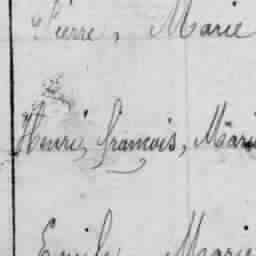 Pierre, Marie
Henri, François, Marie
Emile Marie